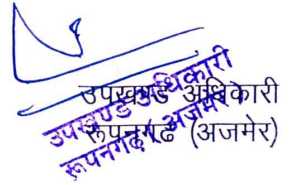 उपखण्ड अधिकारी
रूपनगढ (अजमेर)
उपखण्ड अधिकारी
रूपनगढ़ (अजमेर)